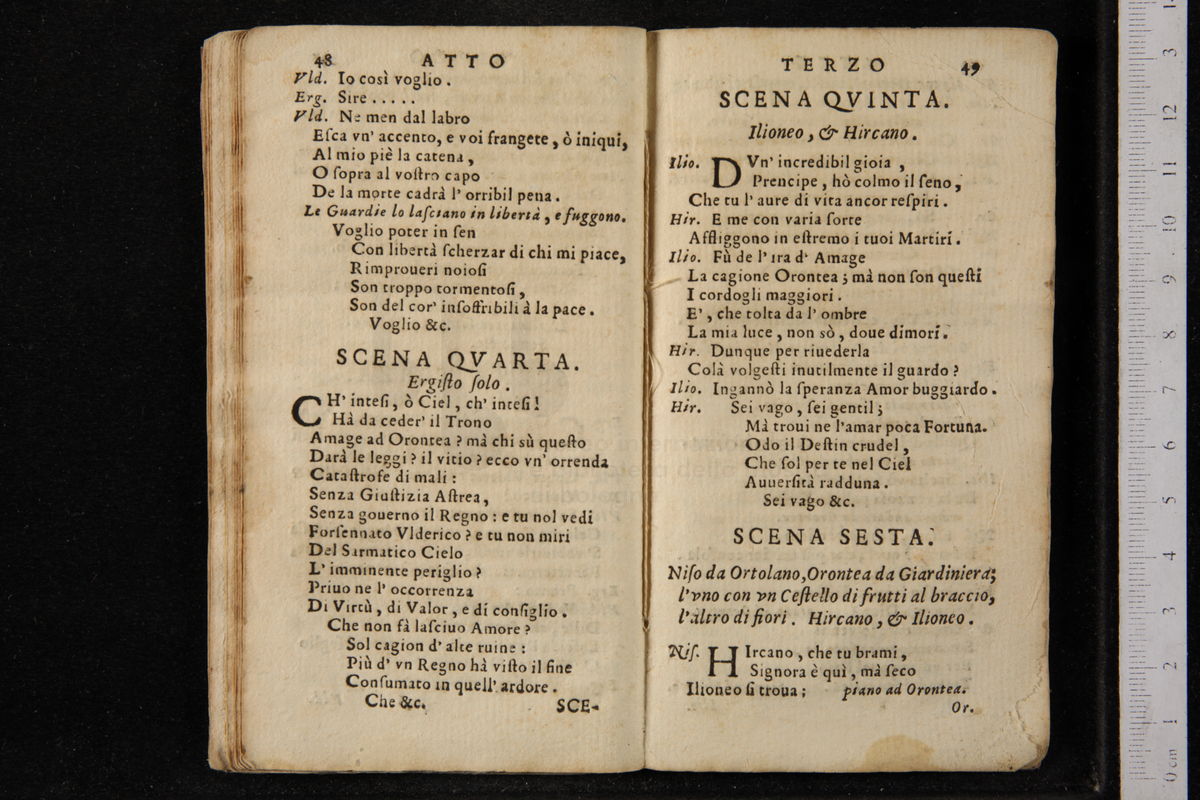 48 ATTO
Vld. Io così voglio .
Erg. Sire . . . . .
Vld. Ne men dal labro
Eſca vn' accento, e voi frangete, ò iniqui,
Al mio piè la catena ,
O ſopra al voſtro capo
De la morte cadrà l' orribil pena .
Le Guardie lo laſciano in libertà , e fuggono.
Voglio poter in ſen
Con libertà ſcherzar di chi mi piace,
Rimproueri noioſi
Son troppo tormentoſi ,
Son del cor' inſoffribili à la pace .
Voglio &c.
SCENA QVARTA.
Ergiſto ſolo .
CH' inteſi , ò Ciel , ch' inteſi !
Hà da ceder' il Trono
Amage ad Orontea ? mà chi sù queſto
Darà le leggi ? il vitio ? ecco vn' orrenda
Cataſtrofe di mali :
Senza Giuſtizia Aſtrea ,
Senza gouerno il Regno : e tu nol vedi
Forſennato Vlderico ? e tu non miri
Del Sarmatico Cielo
L' imminente periglio ?
Priuo ne l' occorrenza
Di Virtù , di Valor , e di conſiglio .
Che non fà laſciuo Amore ?
Sol cagion d' alte ruine :
Più d' vn Regno hà viſto il fine
Conſumato in quell' ardore .
Che &c.
SCE-
TERZO 49
SCENA QVINTA.
Ilioneo , & Hircano .
Ilio. DVn' incredibil gioia ,
Prencipe , hò colmo il ſeno ,
Che tu l' aure di vita ancor reſpiri .
Hir. E me con varia ſorte
Affliggono in eſtremo i tuoi Martiri .
Ilio. Fù de l' ira d' Amage
La cagione Orontea ; mà non ſon queſti
I cordogli maggiori .
E' , che tolta da l' ombre
La mia luce , non sò , doue dimori .
Hir. Dunque per riuederla
Colà volgeſti inutilmente il guardo ?
Ilio. Ingannò la ſperanza Amor buggiardo .
Hir. Sei vago , ſei gentil ;
Mà troui ne l'amar poca Fortuna.
Odo il Deſtin crudel ,
Che ſol per te nel Ciel
Auuerſità radduna .
Sei vago &c.
SCENA SESTA.
Niſo da Ortolano, Orontea da Giardiniera;
l'vno con vn Ceſtello di frutti al braccio,
l'altro di fiori . Hircano , & Ilioneo .
Niſ. HIrcano , che tu brami ,
Signora è quì , mà ſeco
Ilioneo ſi troua ; piano ad Orontea.
Or.